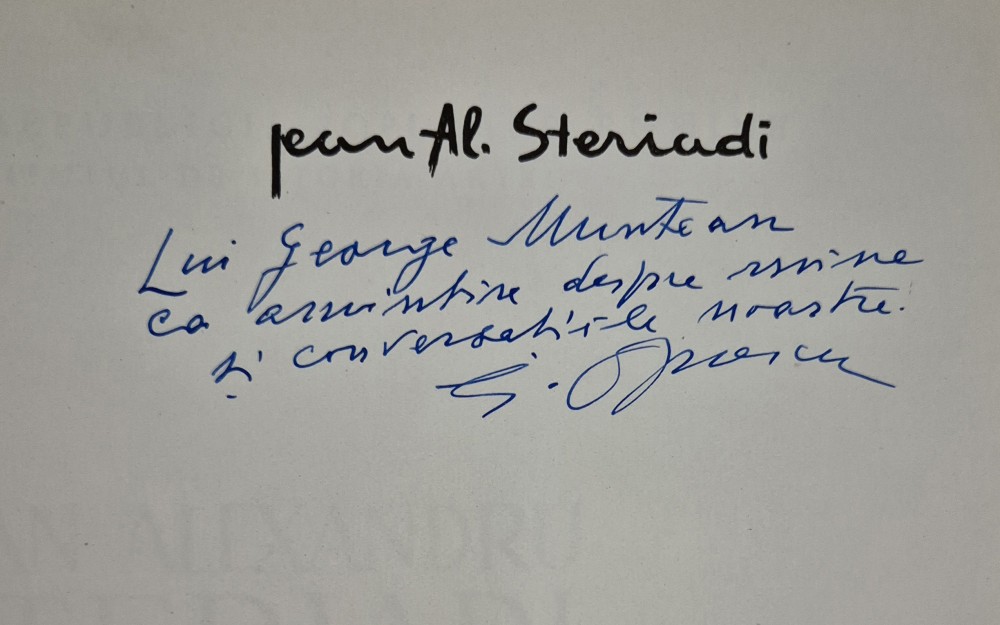 jean Al. Steriadi
Lui George Muntean
ca amintire despre mine
și conversațiile noastre.
G. Oprescu
AN ALEXANDRU